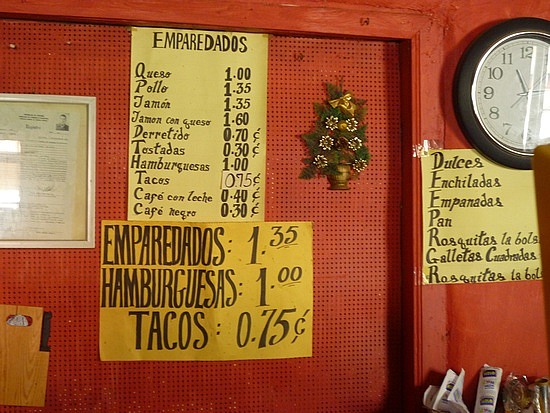 EMPAREDADOS
Queso 1.00
Pollo 1.35
Jamón 1.35
Jamon con queso 1.60
Derretido 0.70 ¢
Tostadas 0.30 ¢
Hamburguesas 1.00
Tacos 0.75 ¢
Café con leche 0.40 ¢
Café negro 0.30 ¢
EMPAREDADOS: 1.35
HAMBURGUESAS: 1.00
TACOS: 0.75 ¢
Dulces
Enchiladas
Empanadas
Pan
Rosquitas la bolsa
Galletas Cuadradas
Rosquitas la bol
12
11
10
9
8
7
6
5